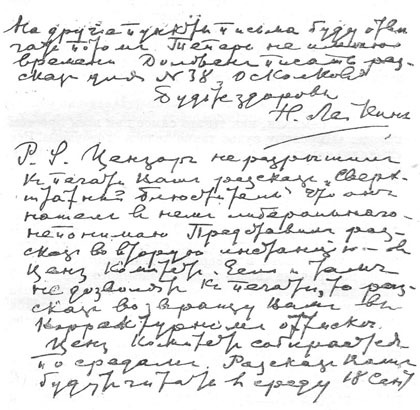 На другіе пункты письма буду отвѣ
чать потомъ. Теперь не имѣю
времени. Долженъ писать раз-
сказъ для N 38 Осколковъ
Будьте здоровы
Н. Лейкинъ
P. S. Цензоръ не разрѣшилъ
къ печати Вашъ разсказъ „Сверх-
штатный блюститель". Что онъ
нашелъ въ немъ либеральнаго -
не понимаю. Представилъ раз-
сказъ во вторую инстанцію - въ
Ценз. Комитетъ. Если и тамъ
не дозволятъ къ печати, то раз-
сказъ возвращу Вамъ въ
Корректурномъ оттискѣ.
Ценз. Комитетъ собирается
по средамъ. Разсказъ Вашъ
будутъ читать въ среду 18 Сент